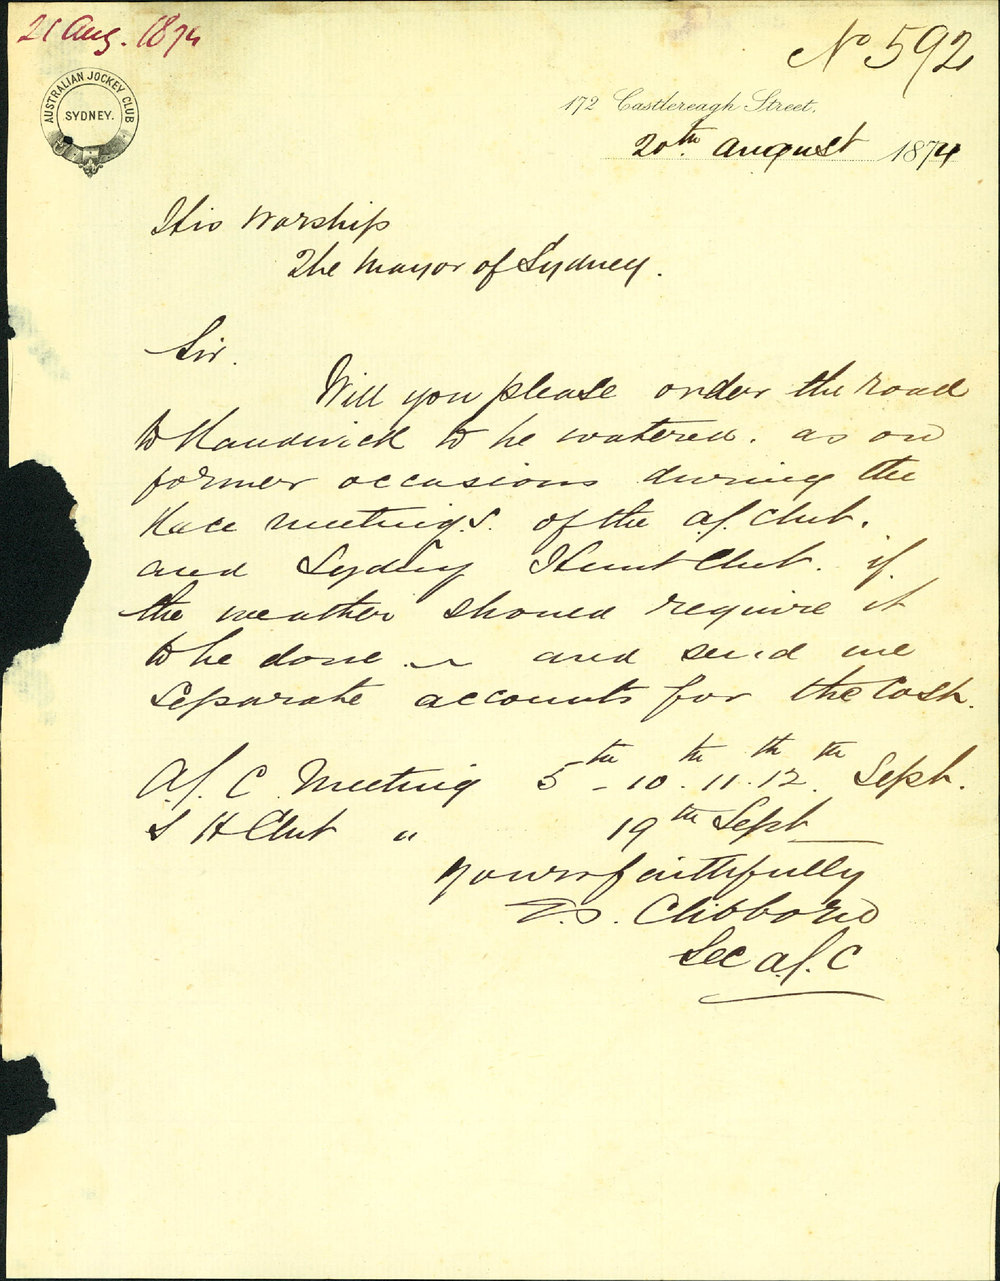 21 Aug. 1874
No 592
AUSTRALIAN JOCKEY CLUB
SYDNEY.
172 Castlereagh Street,
20th August 1874
His Worship
The Mayor of Sydney.
Sir.
Will you please order the road
to Randwick to be watered. as on
former occasions during the
Race meetings. of the A.J. Club.
and Sydney Hunt Club. if
the weather should require it
to be done ~ and send me
separate accounts for the Cost.
A.J. C Meeting 5th - 10th. 11th. 12th Sept.
S H Club " 19th Sept
Yours faithfully
T.S. Clibborn
Sec A.J. C